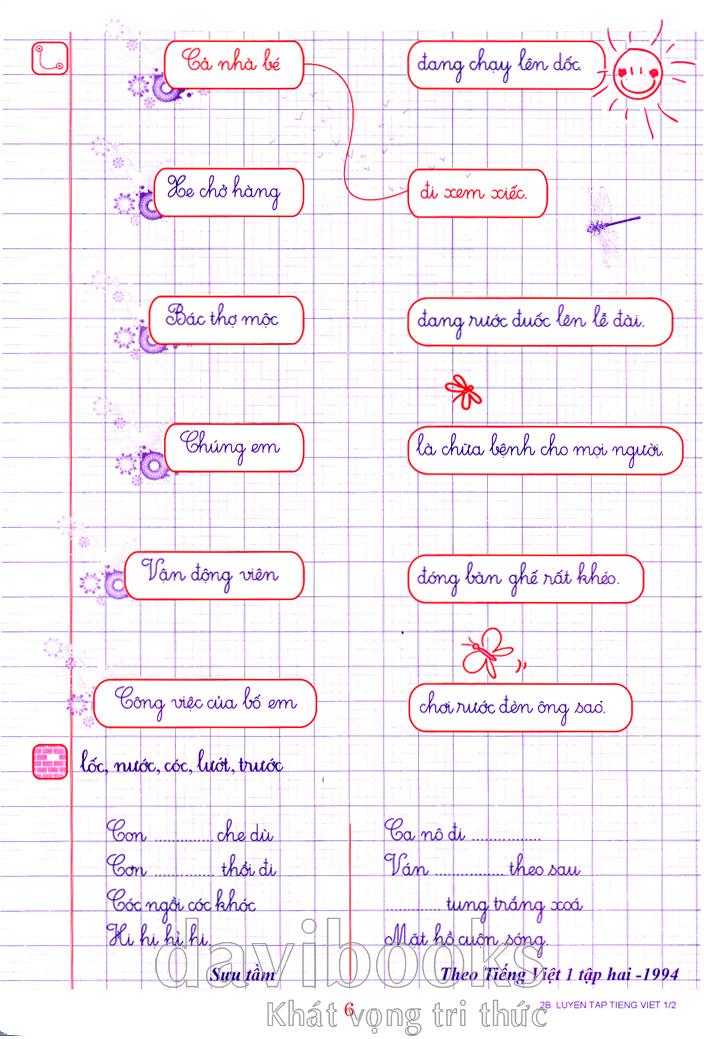 Cả nhà bé
đang chạy lên dốc.
Xe chở hàng
đi xem xiếc.
Bác thợ mộc
đang rước đuốc lên lễ đài.
Chúng em
là chữa bệnh cho mọi người.
Vận động viên
đóng bàn ghế rất khéo.
Công việc của bố em
chơi rước đèn ông sao.
lốc, nước, cóc, lướt, trước
Con .............. che dù
Con .............. thổi đi
Cóc ngồi cóc khóc
Hi hi hì hi.
Sưu tầm
Ca nô đi .................
Ván ................. theo sau
.............. tung trắng xoá
Mặt hồ cuộn sóng.
Theo Tiếng Việt 1 tập hai -1994
davibooks
Khát vọng tri thức
6
2B LUYEN TAP TIENG VIET 1/2